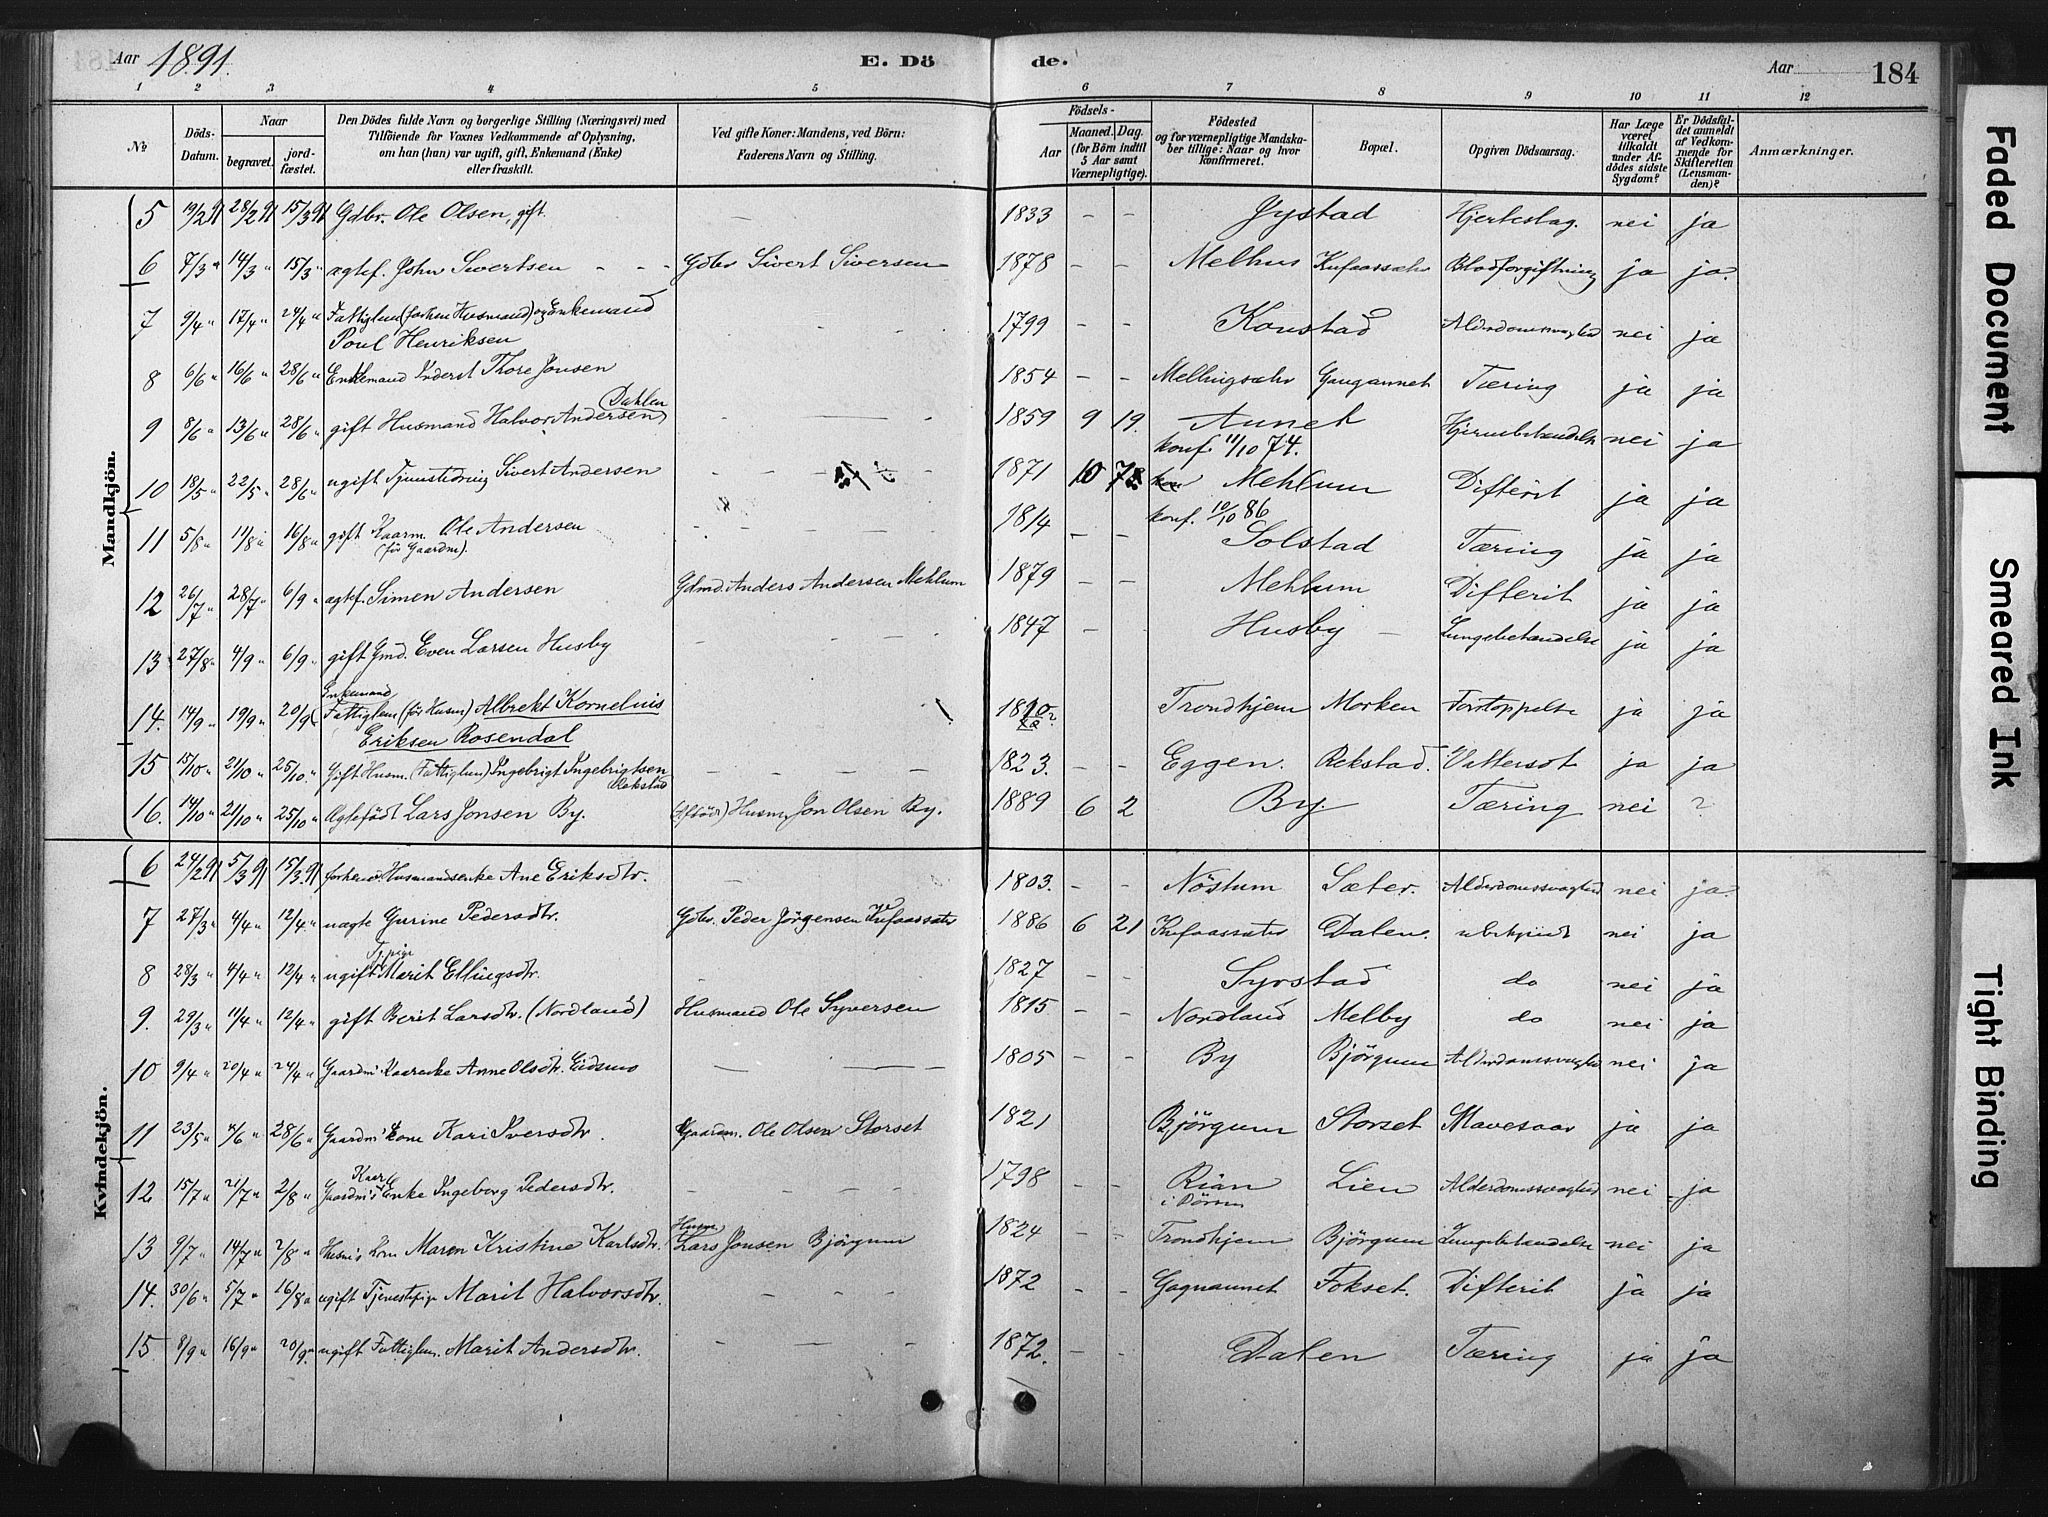 Aar 1891. E. Dö de. Aar 184
1 2 3 4 5 6 7 8 9 10 11 12
No
Döds-Datum.
Naar
begravet.
jordfæstet.
Den Dödes fulde Navn og borgerlige Stilling (Næringsvei) med
Tilföiende for Voxnes Vedkommende af Oplysning,
om han (hun) var ugift, gift, Enkemand (Enke)
eller fraskilt.
Ved gifte Koner: Mandens, ved Börn:
Faderens Navn og Stilling.
Födsels-
Aar
Maaned. Dag.
(for Börn indtil
5 Aar samt
Værnepligtige).
Födested
og for værnepligtige Mandska-
ber tillige: Naar og hvor
Konfirmeret.
Bopæl.
Opgiven Dödsaarsag.
Har Læge
været
tilkaldt
under Af-
dödes sidste
Sygdom?
Er Dödsfal-
det anmeldt
af Vedkom-
mende for
Skifteretten
(Lensman-
den)?
Anmærkninger.
Mandkjön.
5 19/2 91 28/2 91 15/3 91 Gdbr. Ole Olsen, gift. — 1833 - - Gystad Hjerteslag. nei ja
6 7/3 " 14/3 " 15/3 " ægtef. John Sivertsen - - - Gdbr Sivert Siversen 1878 - - Melhus Blodforgiftning ja ja.
7 9/4 " 17/4 " 24/4 " Fattiglem (forhen Husmand) og Enkemand - - - 1799 - - Konstad Alderdomssvaghed nei ja
Poul Henriksen
8 6/6 " 16/6 " 28/6 " Enkemand Inderst Thore Jonsen 1854 - - Mellingsæhr Gaugannet Tæring ja ja
Dahlen
9 8/6 " 13/6 " 28/6 " gift Husmand Halvor Andersen - 1859 9 19. Aunet Hjernebetændelse nei ja
konf. 11/10 74.
10 18/5 " 22/5 " 28/6 " ugift Tjenestedreng Sivert Andersen - - - 1871 10 Mehlum Difterit ja ja
konf. 10/10 86
11 5/8 " 11/8 " 16/8 " gift Kaarm. Ole Andersen - - - 1814 - - Solstad Tæring ja ja
(för Gaardm).
12 26/7 " 28/7 " 6/9 " ægtef. Simen Andersen Gdmd. Anders Andersen Mehlum 1879 - - Mehlum Difterit ja ja
13 27/8 " 4/9 " 6/9 " gift Gmd. Even Larsen Husby - - - 1847 - - Husby - Lungebetændelse ja ja
Enkemand
14. 14/9 " 19/9 " 20/9 " Fattiglem (för Husm) Albrekt Kornelius - - - - Trondhjem Morken Forstoppelse ja ja
Eriksen Rosendal
15 15/10 " 21/10 " 25/10 " Gift Husm. (Fattiglem) Ingebrigt Ingebrigtsen - - - - 1823. - - Eggen. Rekstad. Vattersot ja ja
Rekstad
16. 14/10 " 21/10 " 25/10 " Ægtefödt Lars Jonsen By. Husm. Jon Olsen By. 1889 6 2 By. Tæring nei ?
Kvindekjön.
6 24/2 91 5/3 91 15/3 91 forhenv. Husmandsenke Ane Eriksdtr. - 1803. - - Nöstum Sæter. Alderdomssvaghed nei ja.
7 27/3 " 4/4 " 12/4 " uægte Gurine Pedersdtr. Gdbr. Peder Jörgensen Kufaassæter 1886 6 21 Kufaassæter Dalen. ubekjendt nei ja
Tj.pige
8 28/3 " 4/4 " 12/4 " ugift Marit Ellingsdtr. - 1827 - - Syrstad do nei ja
9. 29/3 " 11/4 " 12/4 " gift Berit Larsdtr. (Nordland) Husmand Ole Syversen 1815 - - Nordland Melby do nei ja
10 9/4 " 20/4 " 24/4 " Gaardm. Kaarenke Anne Olsdtr. Eidsmo - - - 1805 - - By Björgum Alderdomssvaghed nei ja
11 23/5 " 28/6 " Gaardm's kone Kari Iversdtr. Gaardm. Ole Olsen Storset 1821 Björgum Storset Mavesaar ja ja
Kaar
12 15/7 " 21/7 " 2/8 " Gaardm's Enke Ingeborg Pedersdtr. - - - - 1798 - - Rian Lien Alderdomssvaghed nei - ja
Husm.
13 9/7 " 14/7 " 2/8 " Husm's kone Maren Kristine Karlsdtr. Lars Jonsen Björgum 1824 - - Trondhjem Björgum Lungebetændelse nei ja
14. 30/6 " 5/7 " 16/8 " ugift Tjenestepige Marit Halvorsdtr. - - - 1872 - - Gagnaunet Fokset. Difterit ja ja
15. 8/9 " 16/9 " 20/9 " ugift Fattiglem. Marit Andersdtr. - - - 1872. - - Dalen Tæring ja ja
Faded Document
Smeared Ink
Tight Binding